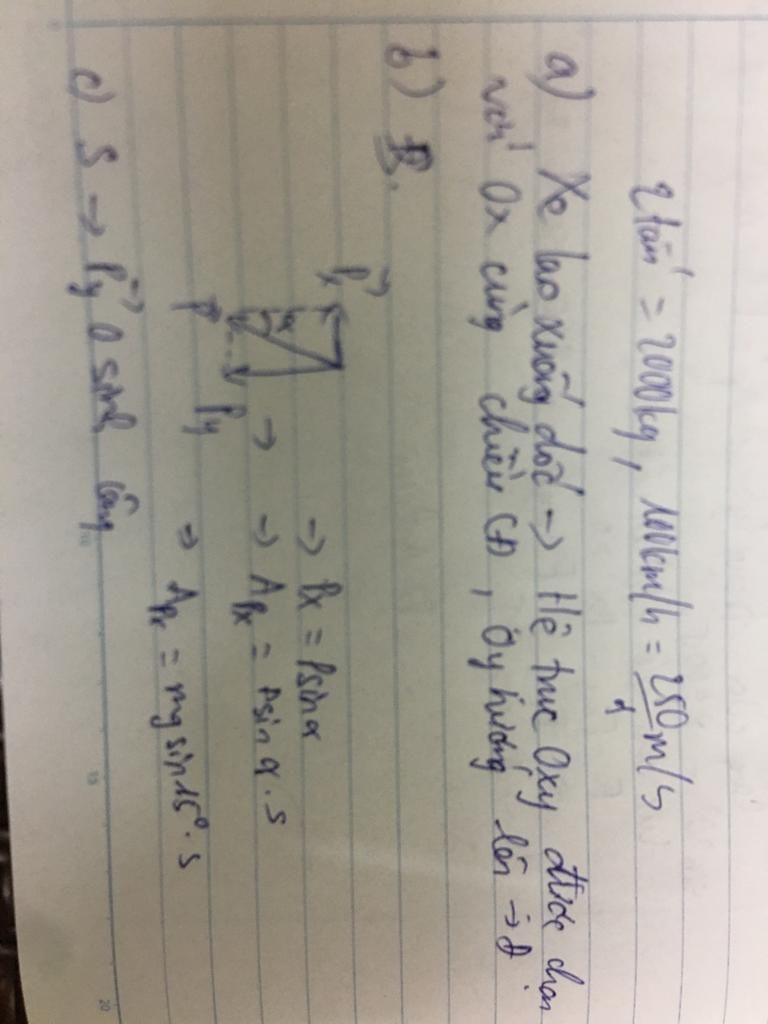 2 tấn = 2000kg, 100km/h = 250/9 m/s
a) Xe lao xuống dốc → Hệ trục Oxy được chọn
với Ox cùng chiều CĐ, Oy hướng lên → Đ.
b) B.
Px
→ Px = Psinα
→ → APx = Psinα.s
P Py ⇒ APx = mgsin15°.s
c) S → Py 0 sinh công